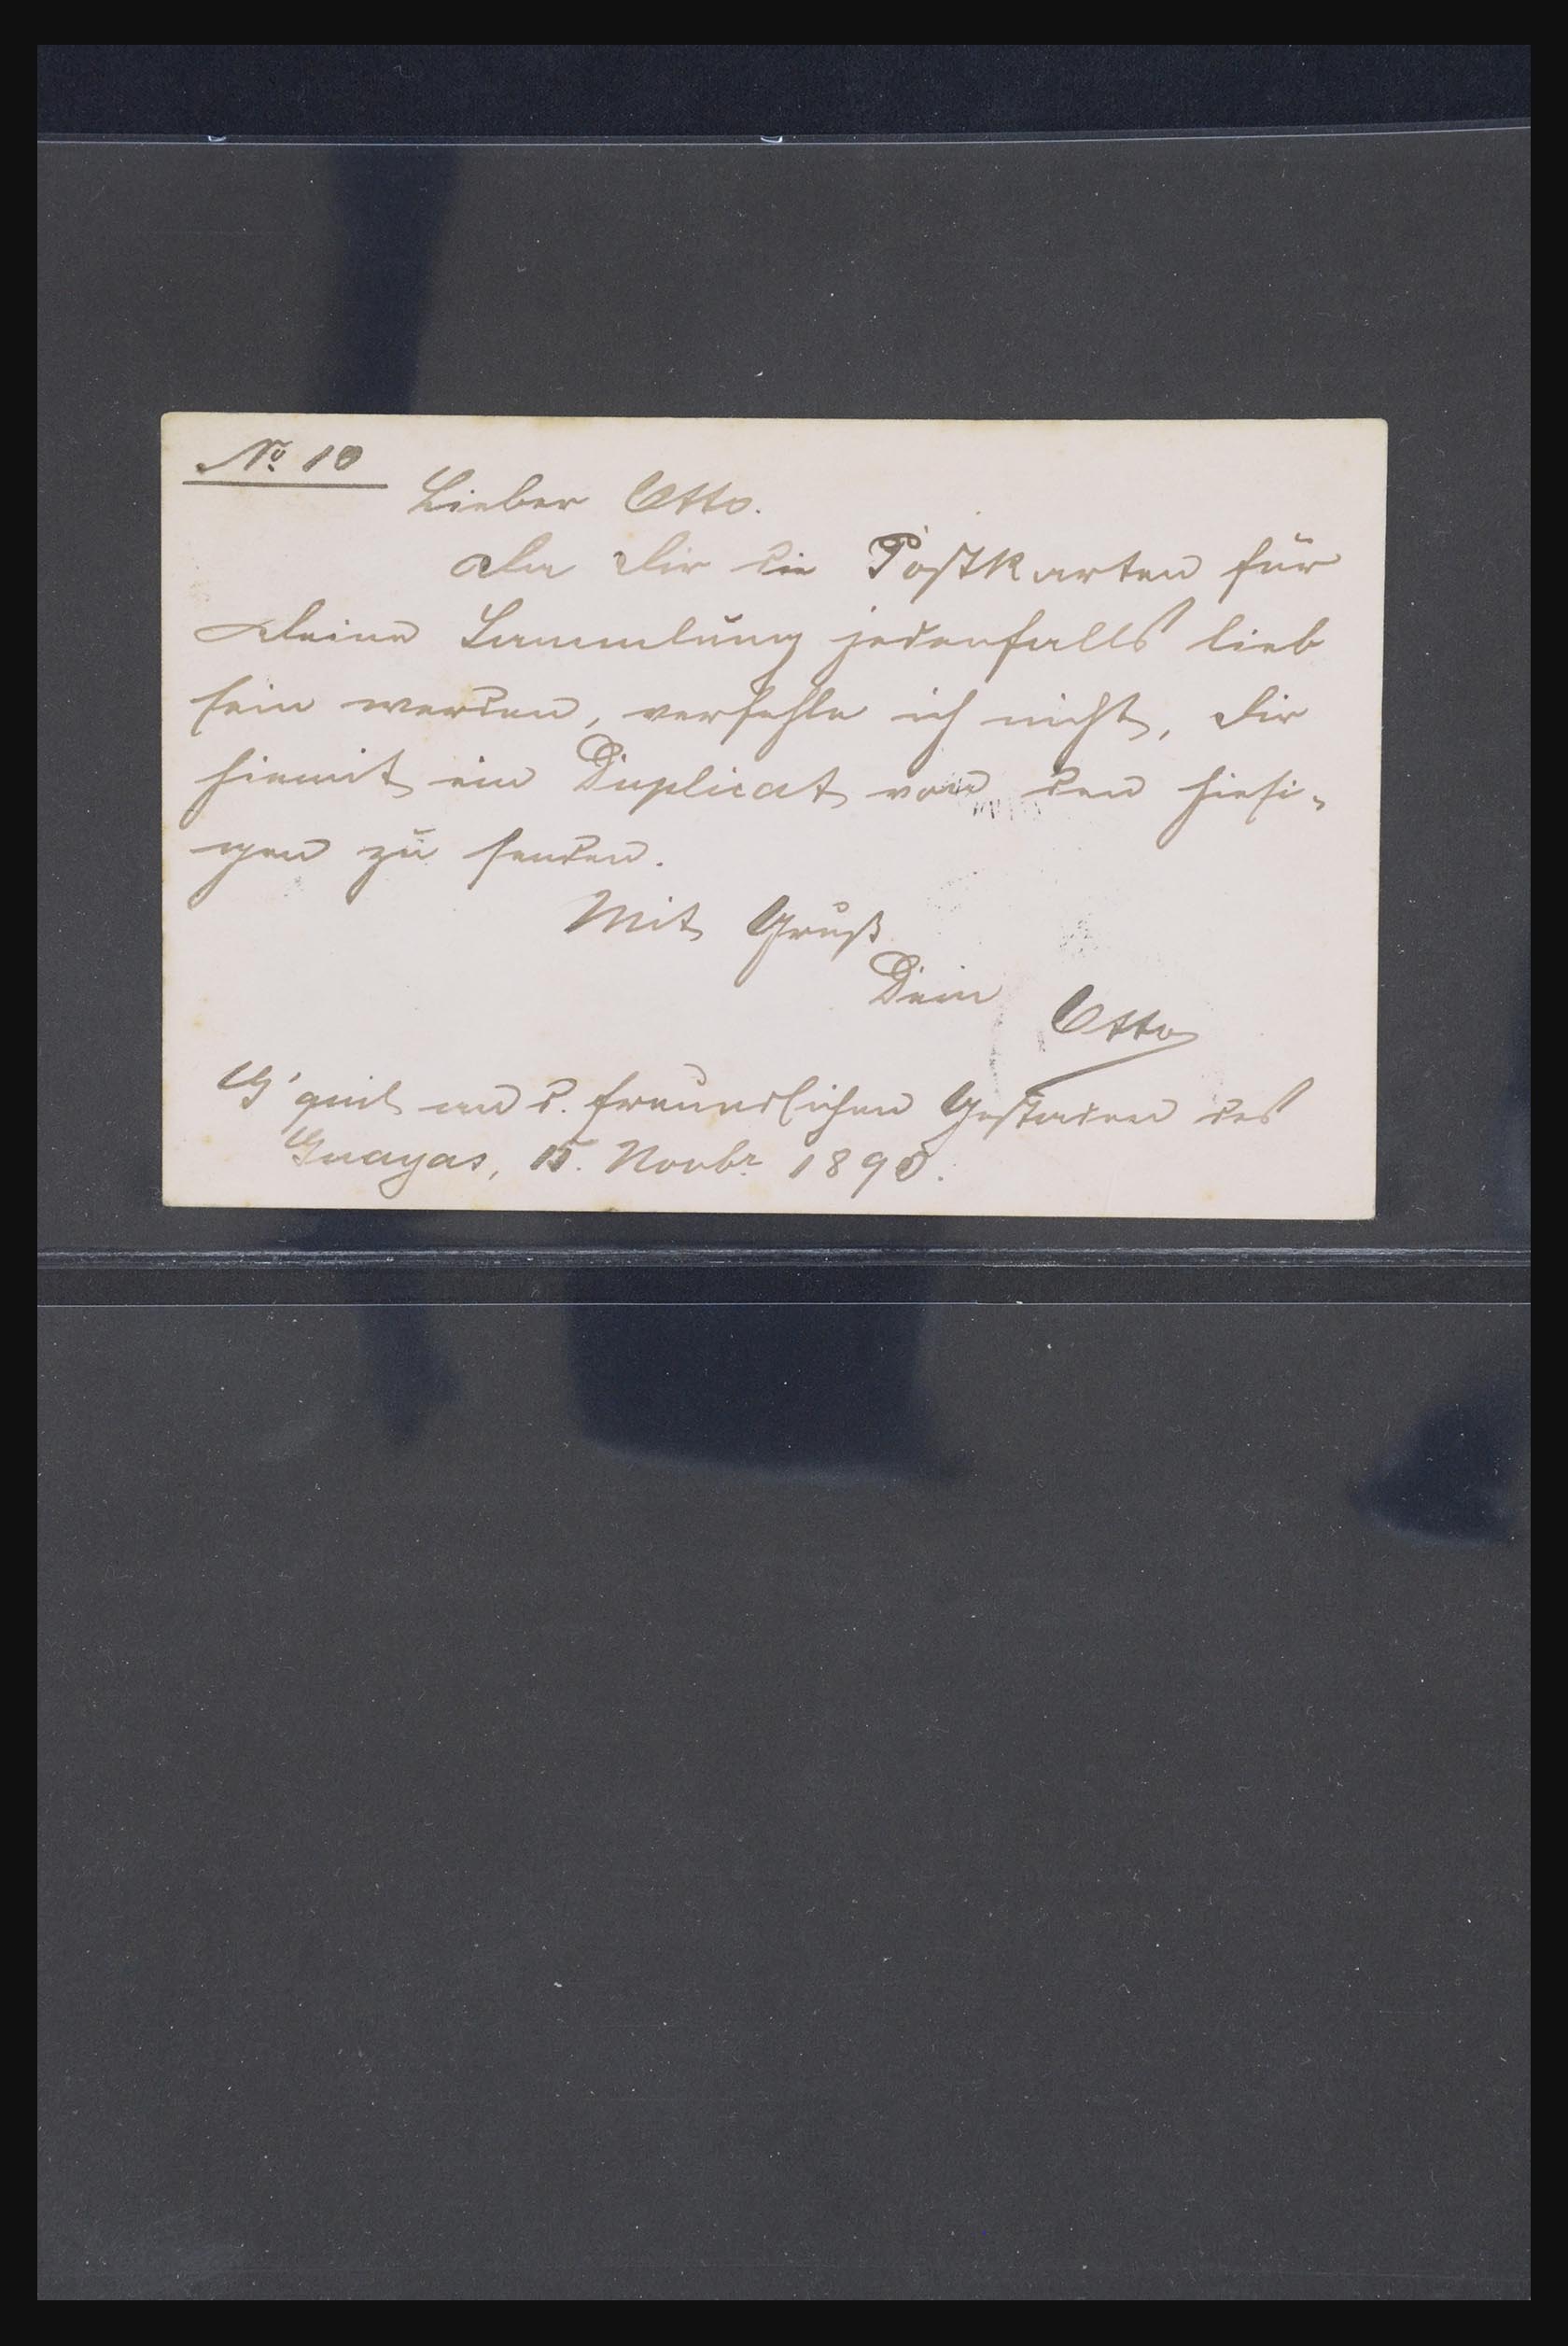 No. 10
Lieber Otto.
Da Dir die Postkarten für
Deine Sammlung jedenfalls lieb
sein werden, verfehle ich nicht, Dir
hiemit ein Duplicat von den hiesi-
gen zu senden.
Mit Gruß
Dein Otto
G'quil an d. freundlichen Gestaden des
Guayas, 15. Novbr. 1890.